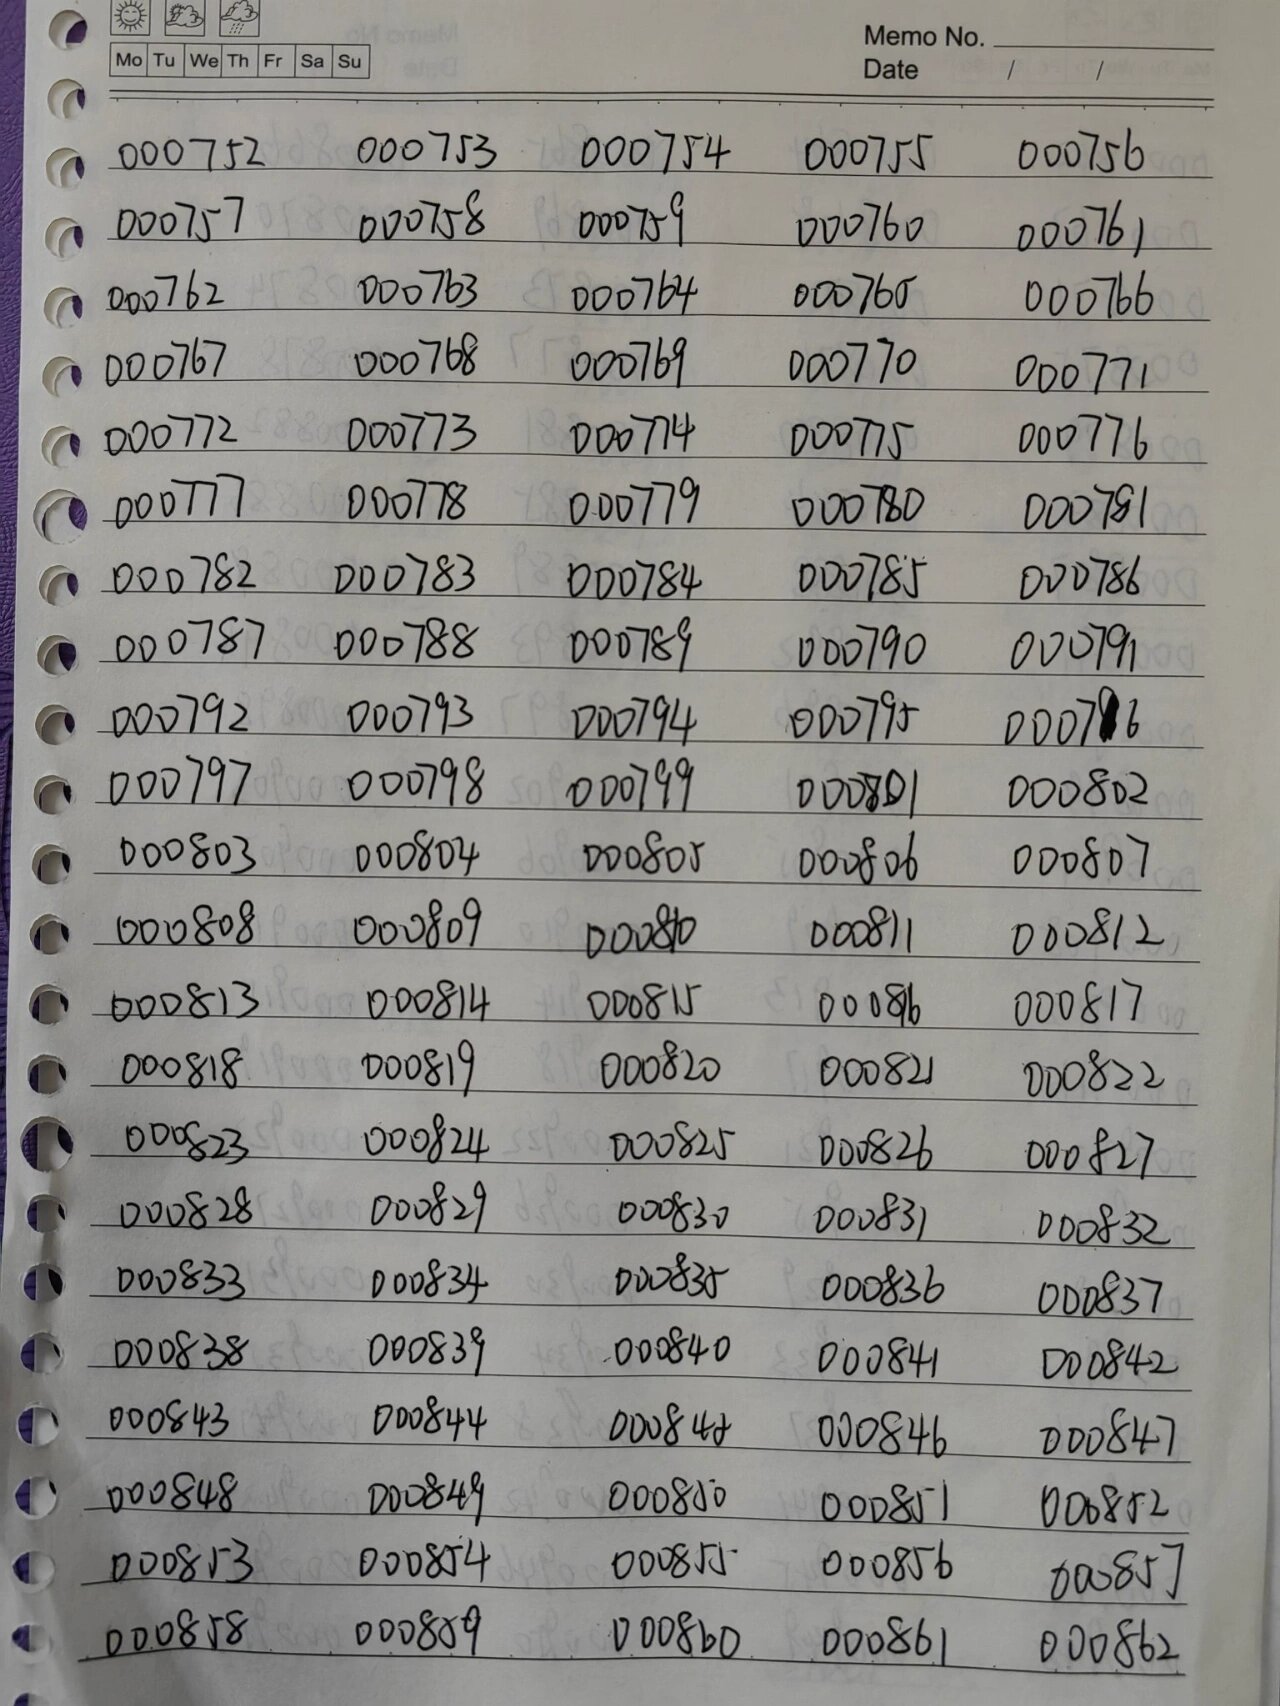 Mo Tu We Th Fr Sa Su
Memo No.
Date / /
000752 000753 000754 000755 000756
000757 000758 000759 000760 000761
000762 000763 000764 000765 000766
000767 000768 000769 000770 000771
000772 000773 000774 000775 000776
000777 000778 000779 000780 000781
000782 000783 000784 000785 000786
000787 000788 000789 000790 000791
000792 000793 000794 000795 000796
000797 000798 000799 000801 000802
000803 000804 000805 000806 000807
000808 000809 000810 000811 000812
000813 000814 000815 000816 000817
000818 000819 000820 000821 000822
000823 000824 000825 000826 000827
000828 000829 000830 000831 000832
000833 000834 000835 000836 000837
000838 000839 000840 000841 000842
000843 000844 000845 000846 000847
000848 000849 000850 000851 000852
000853 000854 000855 000856 000857
000858 000859 000860 000861 000862